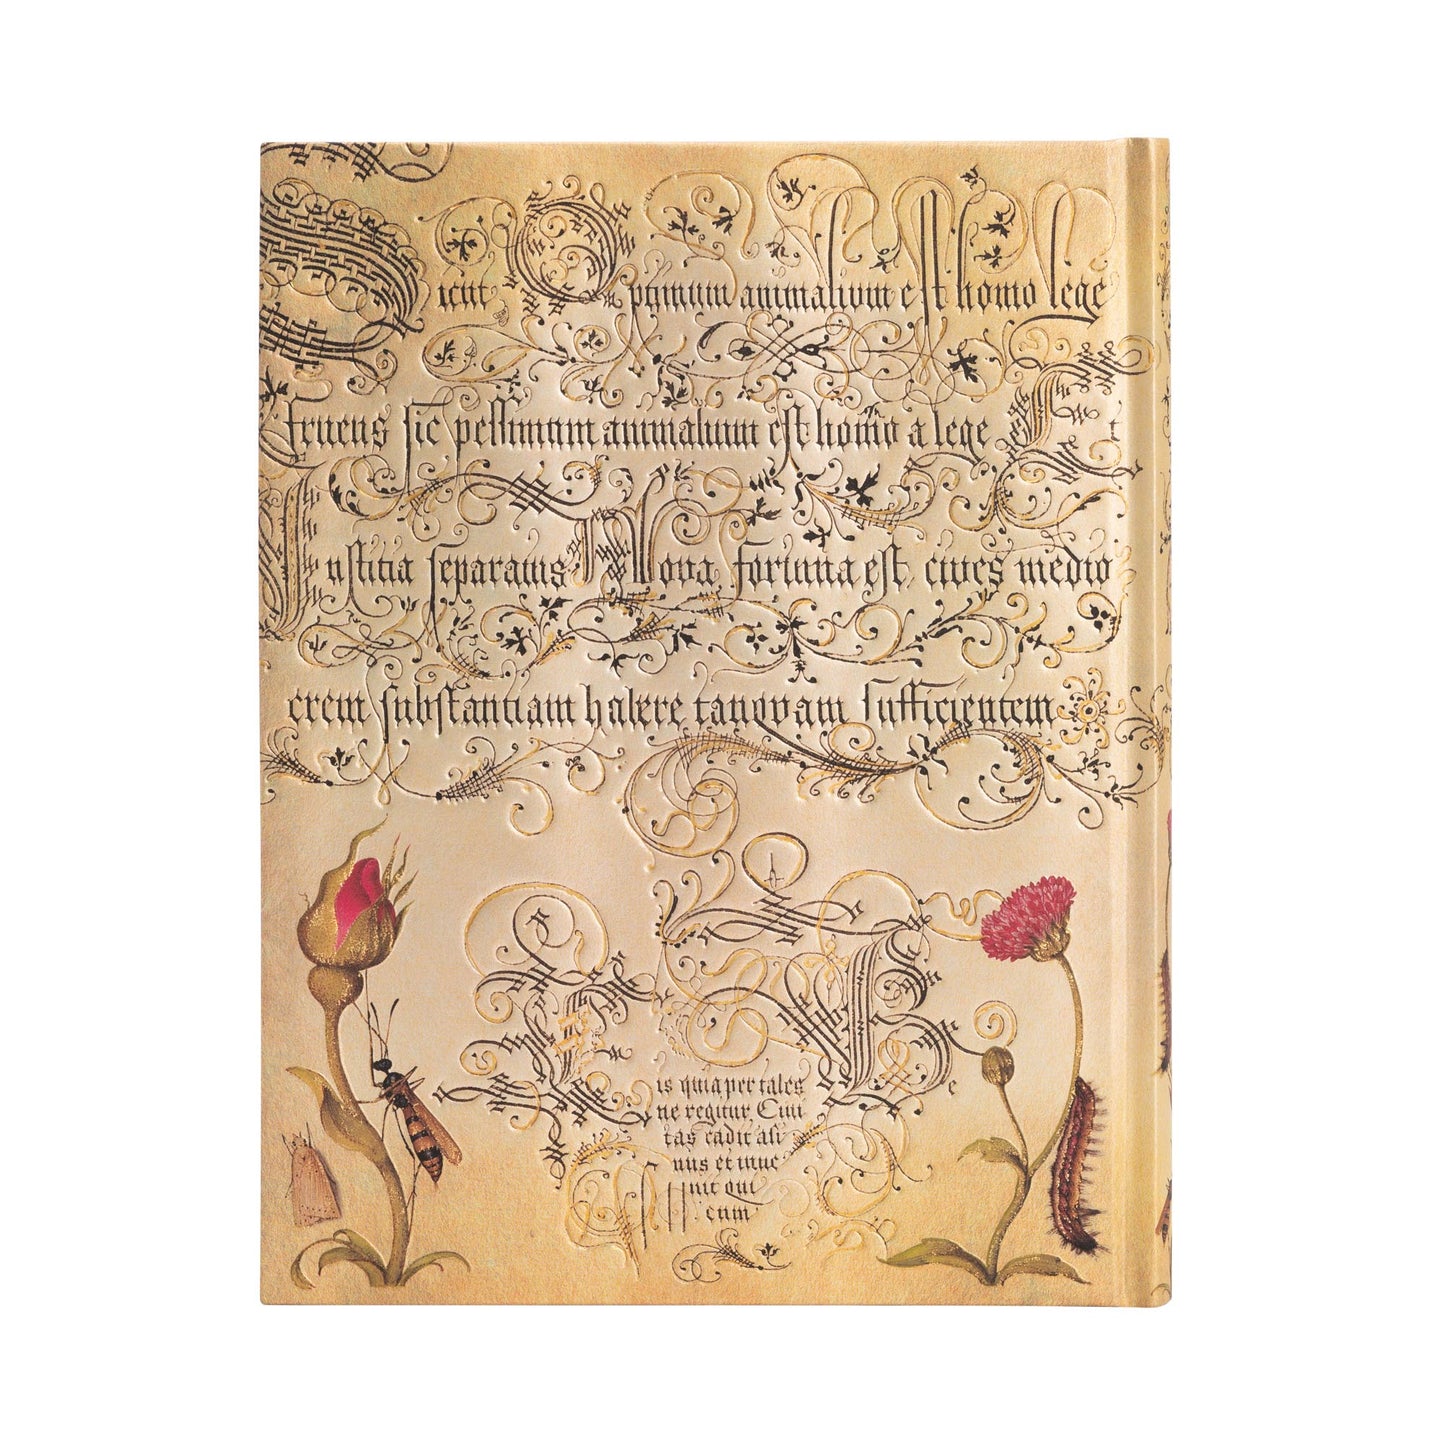 Sicut Optimum animalium est homo lege
fruens sic pessimum animalium est homo a lege Et
Iustitia separatus Nova fortuna est cives medio
crem substantiam habere tanquam sufficientem
is quia per tales be
ne regitur, Ciui
tas cadit asi
nus et inue
nit qui
cum